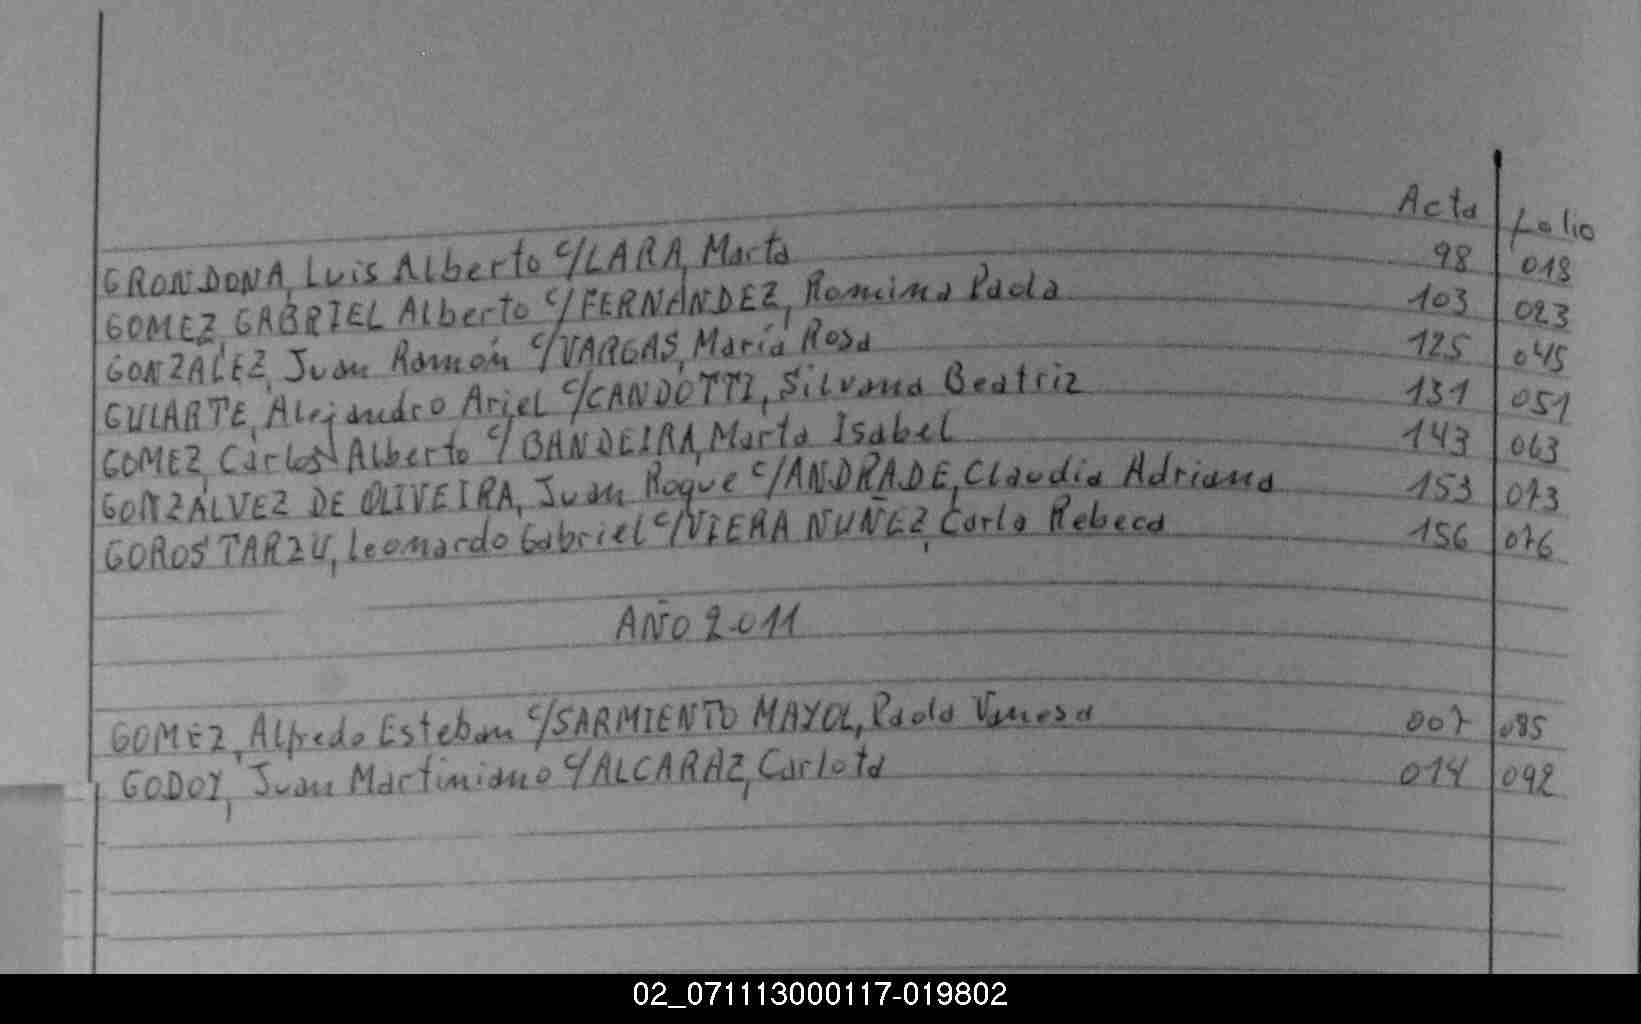 Acta folio
GRONDONA, Luis Alberto c/LARA, Marta 98 018
GOMEZ, GABRIEL Alberto c/FERNÁNDEZ, Romina Paola 103 023
GONZÁLEZ, Juan Ramón c/VARGAS, María Rosa 125 045
GULARTE, Alejandro Ariel c/CANDOTTI, Silvana Beatriz 131 051
GOMEZ, Carlos Alberto c/BANDEIRA, Marta Isabel 143 063
GONZÁLVEZ DE OLIVEIRA, Juan Roque c/ANDRADE, Claudia Adriana 153 073
GOROSTARZU, Leonardo Gabriel c/VIERA NUÑEZ, Carla Rebeca 156 076
AÑO 2.011
GOMEZ, Alfredo Esteban c/SARMIENTO MAYOL, Paola Vanesa 007 085
GODOY, Juan Martiniano c/ALCARAZ, Carlota 014 092
02_071113000117-019802